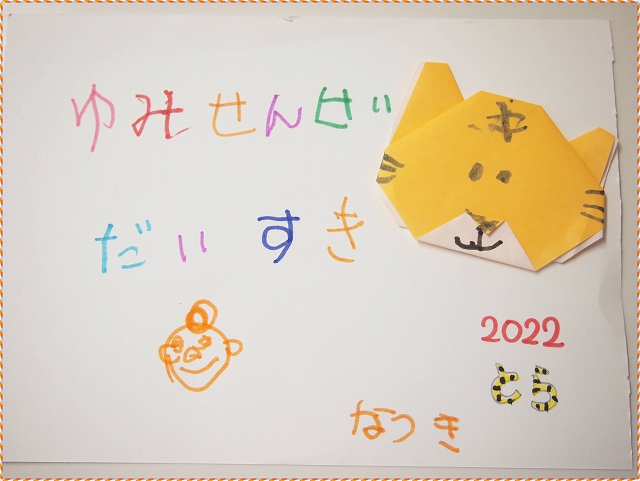 ゆみせんせい
だいすき
2022
とら
なつき